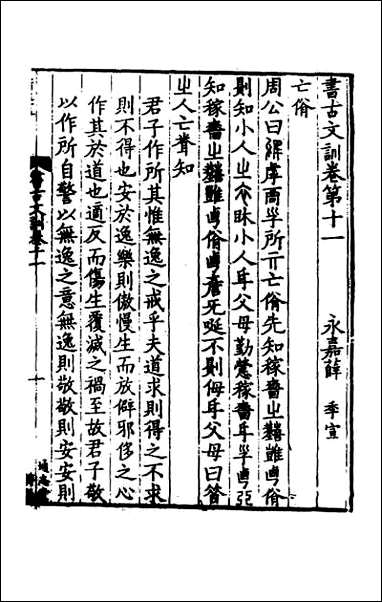 書古文訓卷第十一 永嘉薛 季宣
亡佾
周公曰虖所亓亡佾先知稼嗇㞢囏難甹佾
則知小人㞢小人父母勤稼嗇甹弫
知稼嗇㞢囏難甹佾甹不則侮父母曰昝
㞢人亡知
君子作所其惟無逸之戒乎夫道求則得之不求
則不得也安於逸樂則傲慢生而放僻邪侈之心
作其於道也適反而傷生覆滅之禍至故君子敬
以作所自警以無逸之意無逸則敬敬則安安則
書古文訓卷十一
一
通志堂